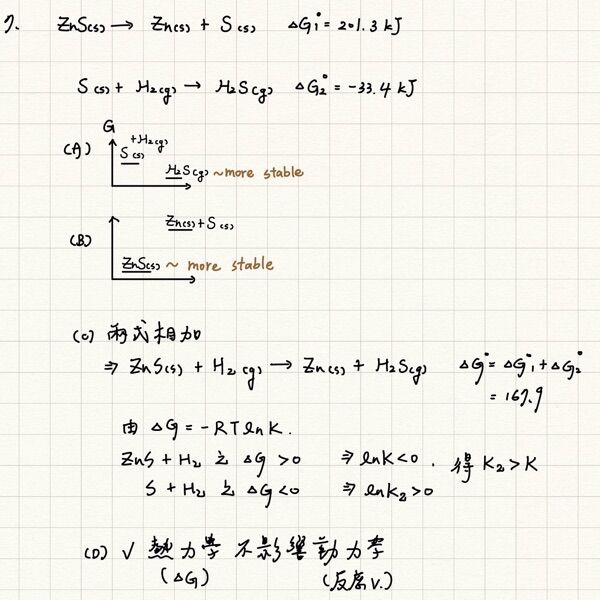 7. ZnS(s) → Zn(s) + S(s) ΔG₁° = 201.3 kJ
S(s) + H₂(g) → H₂S(g) ΔG₂° = -33.4 kJ
G
(A) S(s) +H₂(g)
H₂S(g) ~more stable
Zn(s) + S(s)
(B)
ZnS(s) ~ more stable
(C) 兩式相加
⇒ ZnS(s) + H₂(g) → Zn(s) + H₂S(g) ΔG° = ΔG₁° + ΔG₂°
= 167.9
由 ΔG = -RTlnK.
ZnS + H₂ 之 ΔG > 0 ⇒ lnK < 0 . 得 K₂ > K
S + H₂ 之 ΔG < 0 ⇒ lnK₂ > 0
(D) √ 熱力學 不影響動力學
(ΔG) (反應v.)